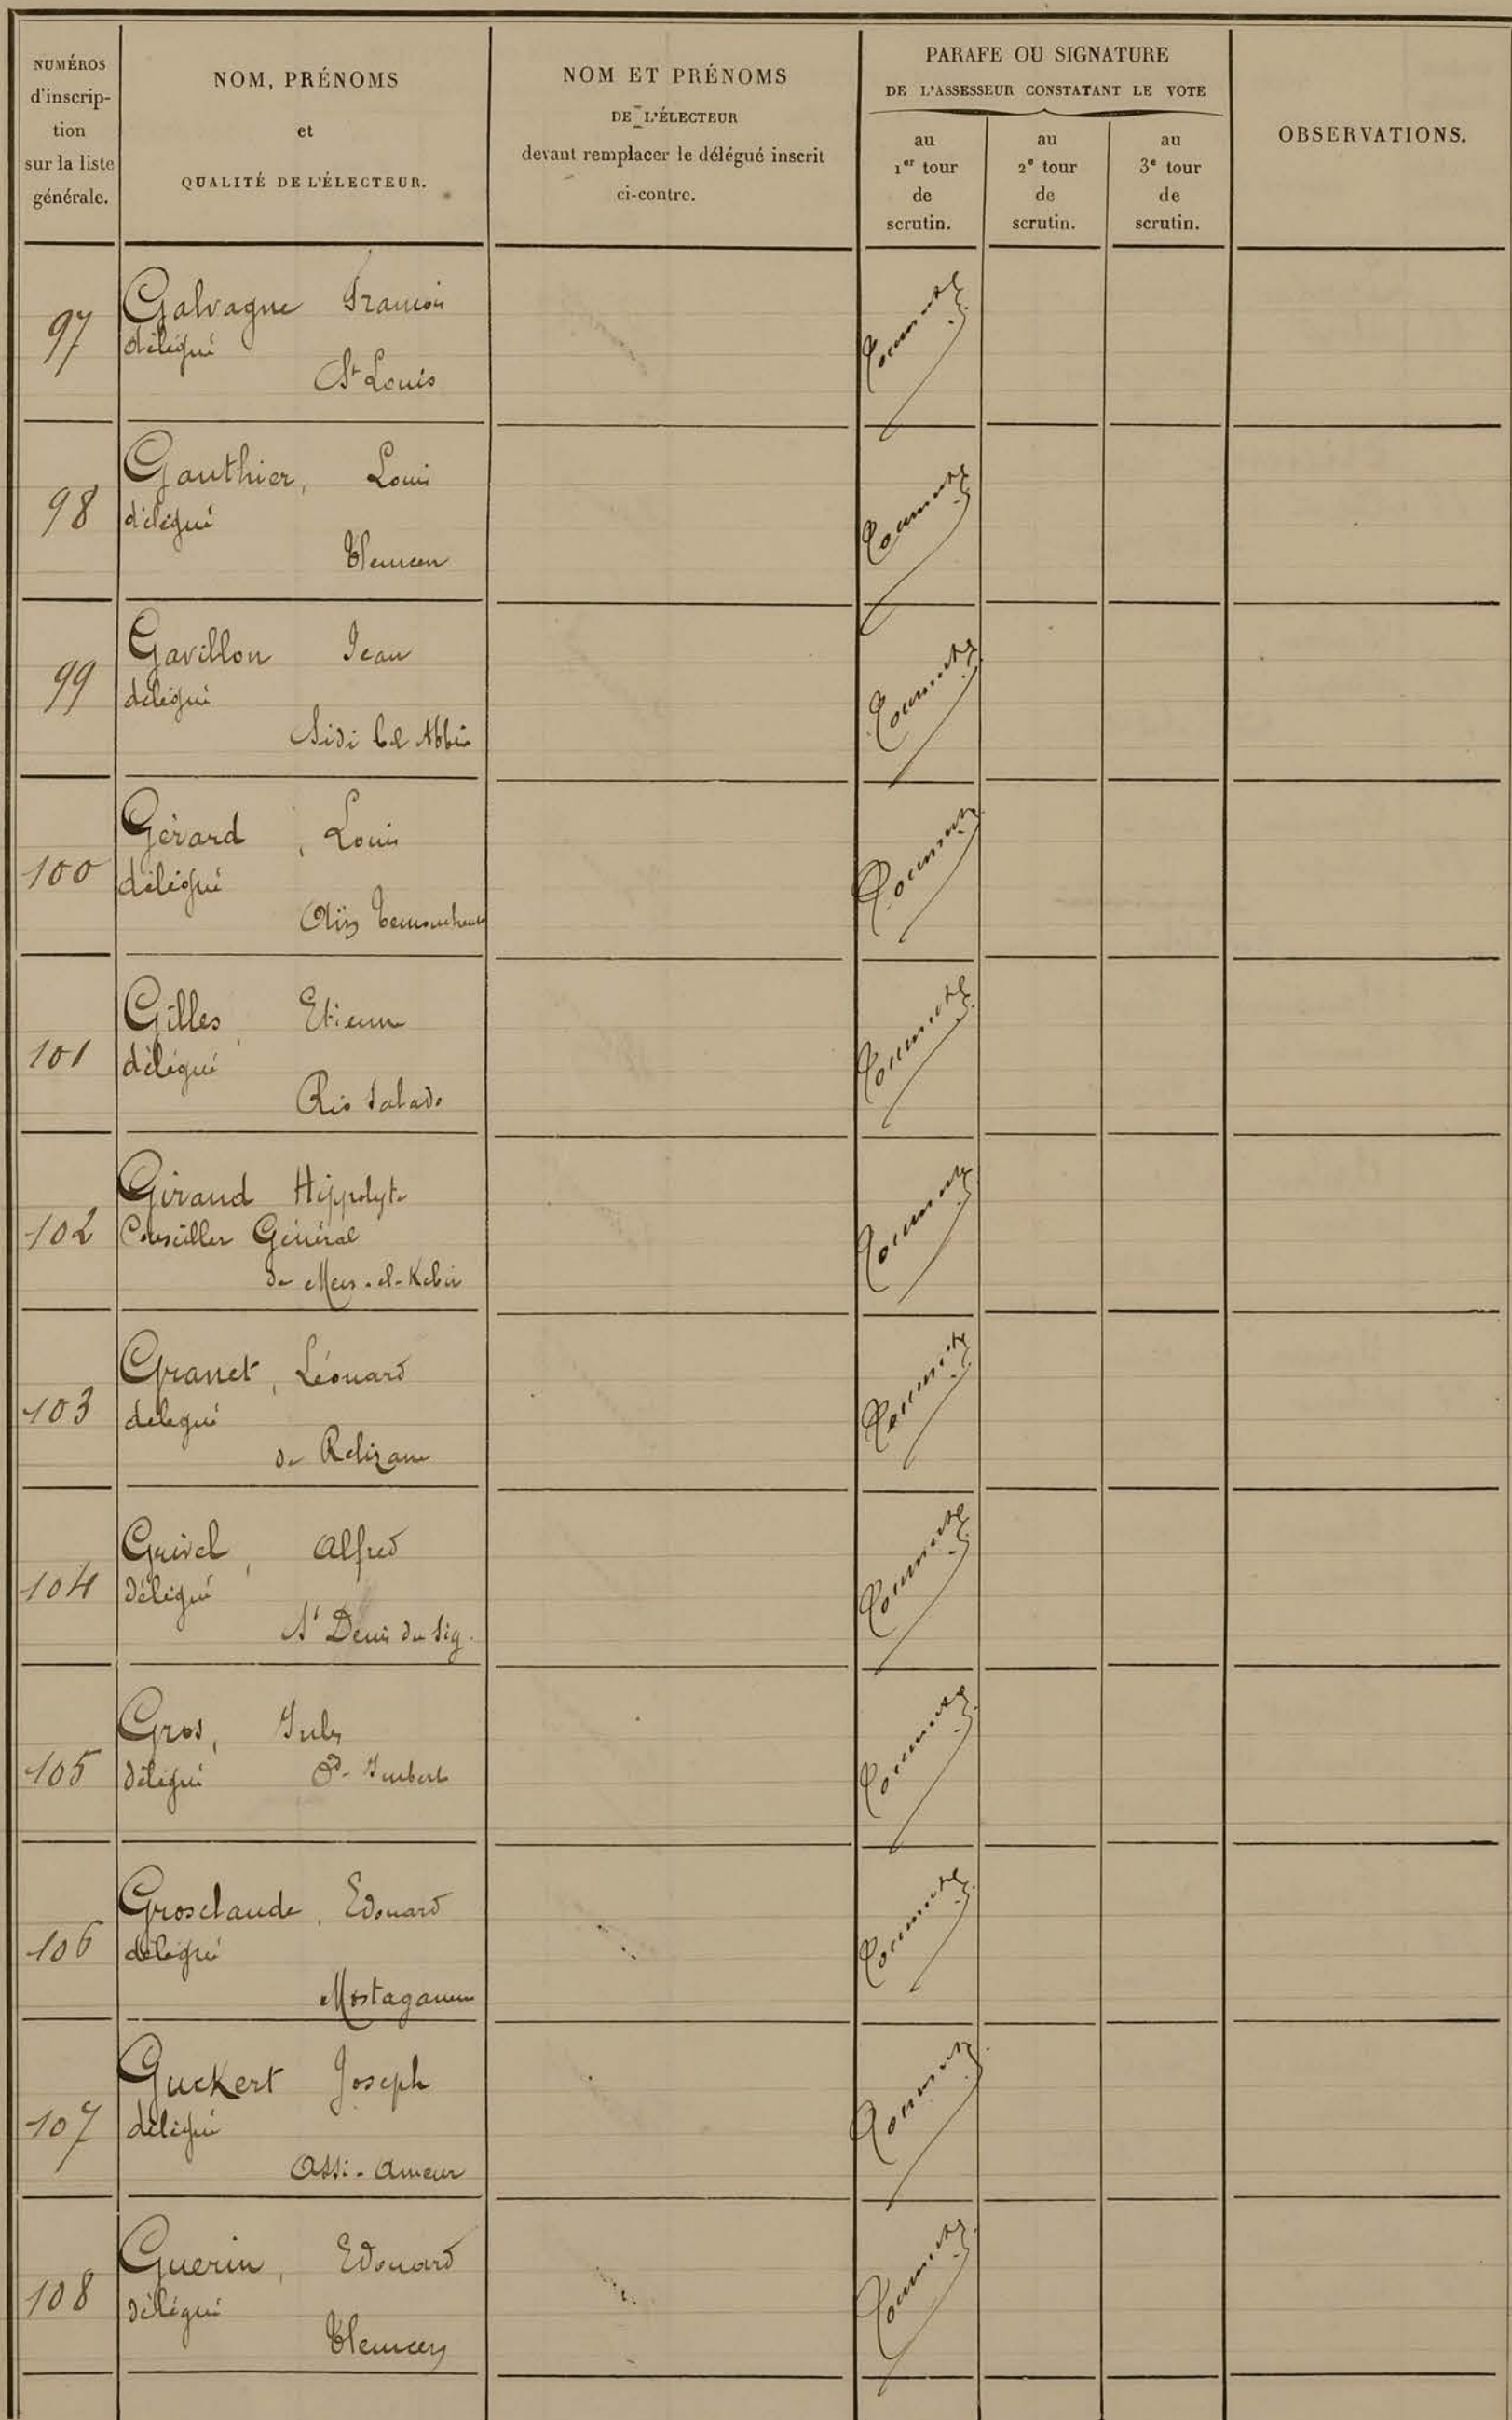 NUMÉROS
d'inscrip-
tion
sur la liste
générale.
NOM, PRÉNOMS
et
QUALITÉ DE L'ÉLECTEUR.
NOM ET PRÉNOMS
DE L'ÉLECTEUR
devant remplacer le délégué inscrit
ci-contre.
PARAFE OU SIGNATURE
DE L'ASSESSEUR CONSTATANT LE VOTE
au
1er tour
de
scrutin.
au
2e tour
de
scrutin.
au
3e tour
de
scrutin.
OBSERVATIONS.
97
Galvagne François
délégué
St Louis
98
Gauthier, Louis
délégué
Tlemcen
99
Gavillon Jean
délégué
Sidi bel Abbès
100
Gérard, Louis
délégué
Aïn Temouchent
101
Gilles, Etienne
délégué
Rio Salado
102
Giraud Hippolyte
Conseiller Général
de Mers-el-Kebir
103
Granet, Léonard
délégué
de Relizane
104
Grivel, Alfred
délégué
St Denis du Sig.
105
Gros, Jules
délégué Od-Imbert
106
Grosclaude, Edouard
délégué
Mostaganem
107
Guckert Joseph
délégué
Assi-Ameur
108
Guerin, Edouard
délégué
Tlemcen